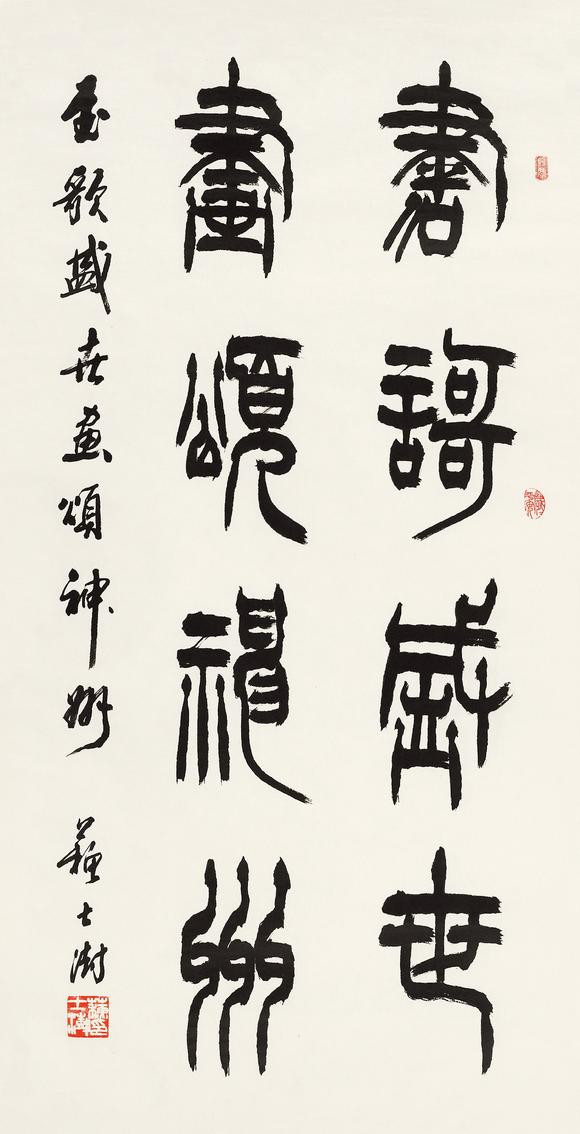 書謌盛世
畫頌神州
書歌盛世畫頌神州 蘇士澍